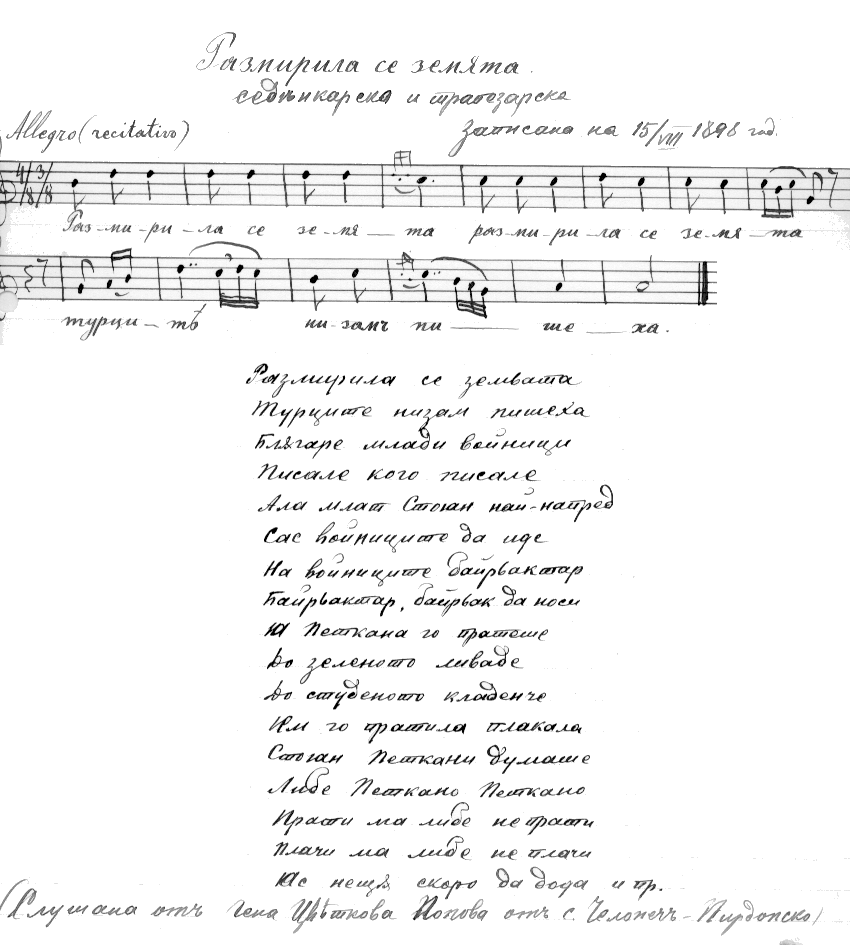 Размирила се земята.
седѣнкарска и трапезарска
Allegro (recitativo)
записана на 15/VIII 1898 год.
4/8 3/8
Раз-ми-ри-ла се зе-мя-та раз-ми-ри-ла се зе-мя-та
турци-тѣ ни-замъ пи-ше-ха.
Размирила се земвата
Турците низам пишеха
Блъгаре млади войници
Писале кого писале
Ала млат Стоян най-напред
Сас войниците да иде
На войниците байрвактар
Байрвактар, байрвак да носи
Петкана го пратеше
До зеленото ливаде
До студеното кладенче
го пратила плакала
Стоян Петкани думаше
Либе Петкано Петкано
Прати ма либе не прати
Плачи ма либе не плачи
Яс нещя скоро да дода и пр.
(Слушана отъ Гена Цвѣткова Попова отъ с. Челопечъ-Пирдопско)